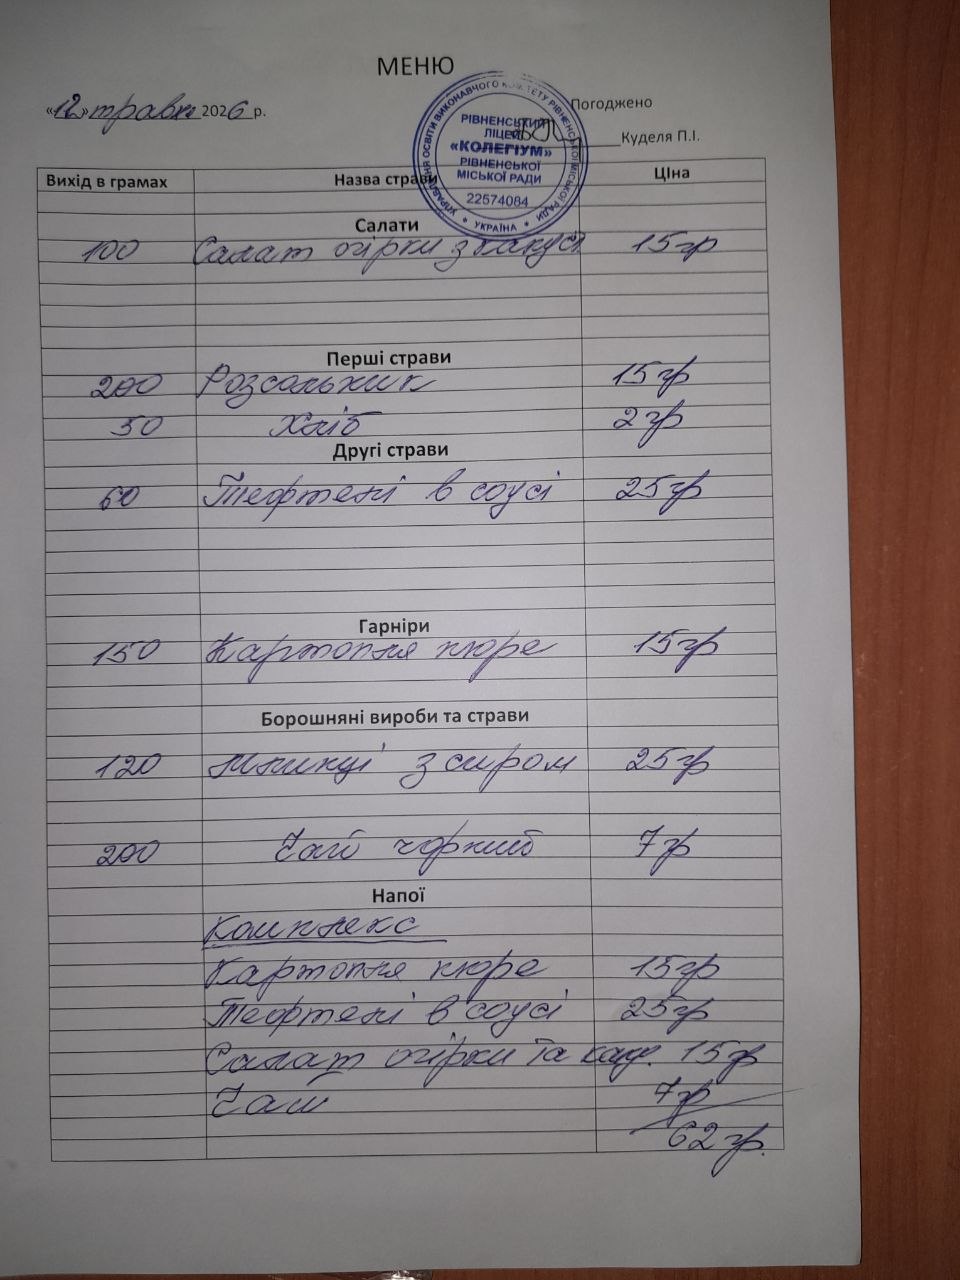 МЕНЮ
«12» травня 2026 р.
Погоджено
Куделя П.І.
УПРАВЛІННЯ ОСВІТИ ВИКОНАВЧОГО КОМІТЕТУ РІВНЕНСЬКОЇ МІСЬКОЇ РАДИ
* УКРАЇНА *
РІВНЕНСЬКИЙ
ЛІЦЕЙ
«КОЛЕГІУМ»
РІВНЕНСЬКОЇ
МІСЬКОЇ РАДИ
22574084
Вихід в грамах Назва страви Ціна
Салати
100 Салат огірки з капусі 15гр
Перші страви
200 Розсольник 15гр
50 Хліб 2гр
Другі страви
60 Тефтелі в соусі 25гр
Гарніри
150 Картопля пюре 15гр
Борошняні вироби та страви
120 Млинці з сиром 25гр
200 Чай чорний 7гр
Напої
Комплекс
Картопля пюре 15гр
Тефтелі в соусі 25гр
Салат огірки та кап. 15гр
Чай 7гр
62гр.